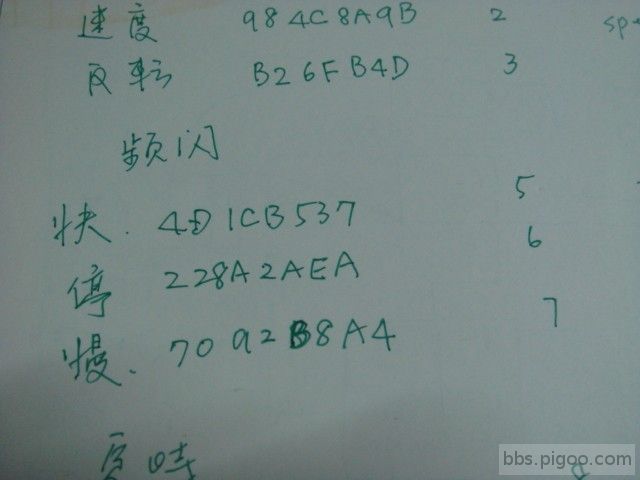 速度 984C8A9B 2 sp
反転 B26FB4D 3
频闪
快. 4D1CB537 5
停 228A2AEA 6
慢. 7092B8A4 7
bbs.pigoo.com